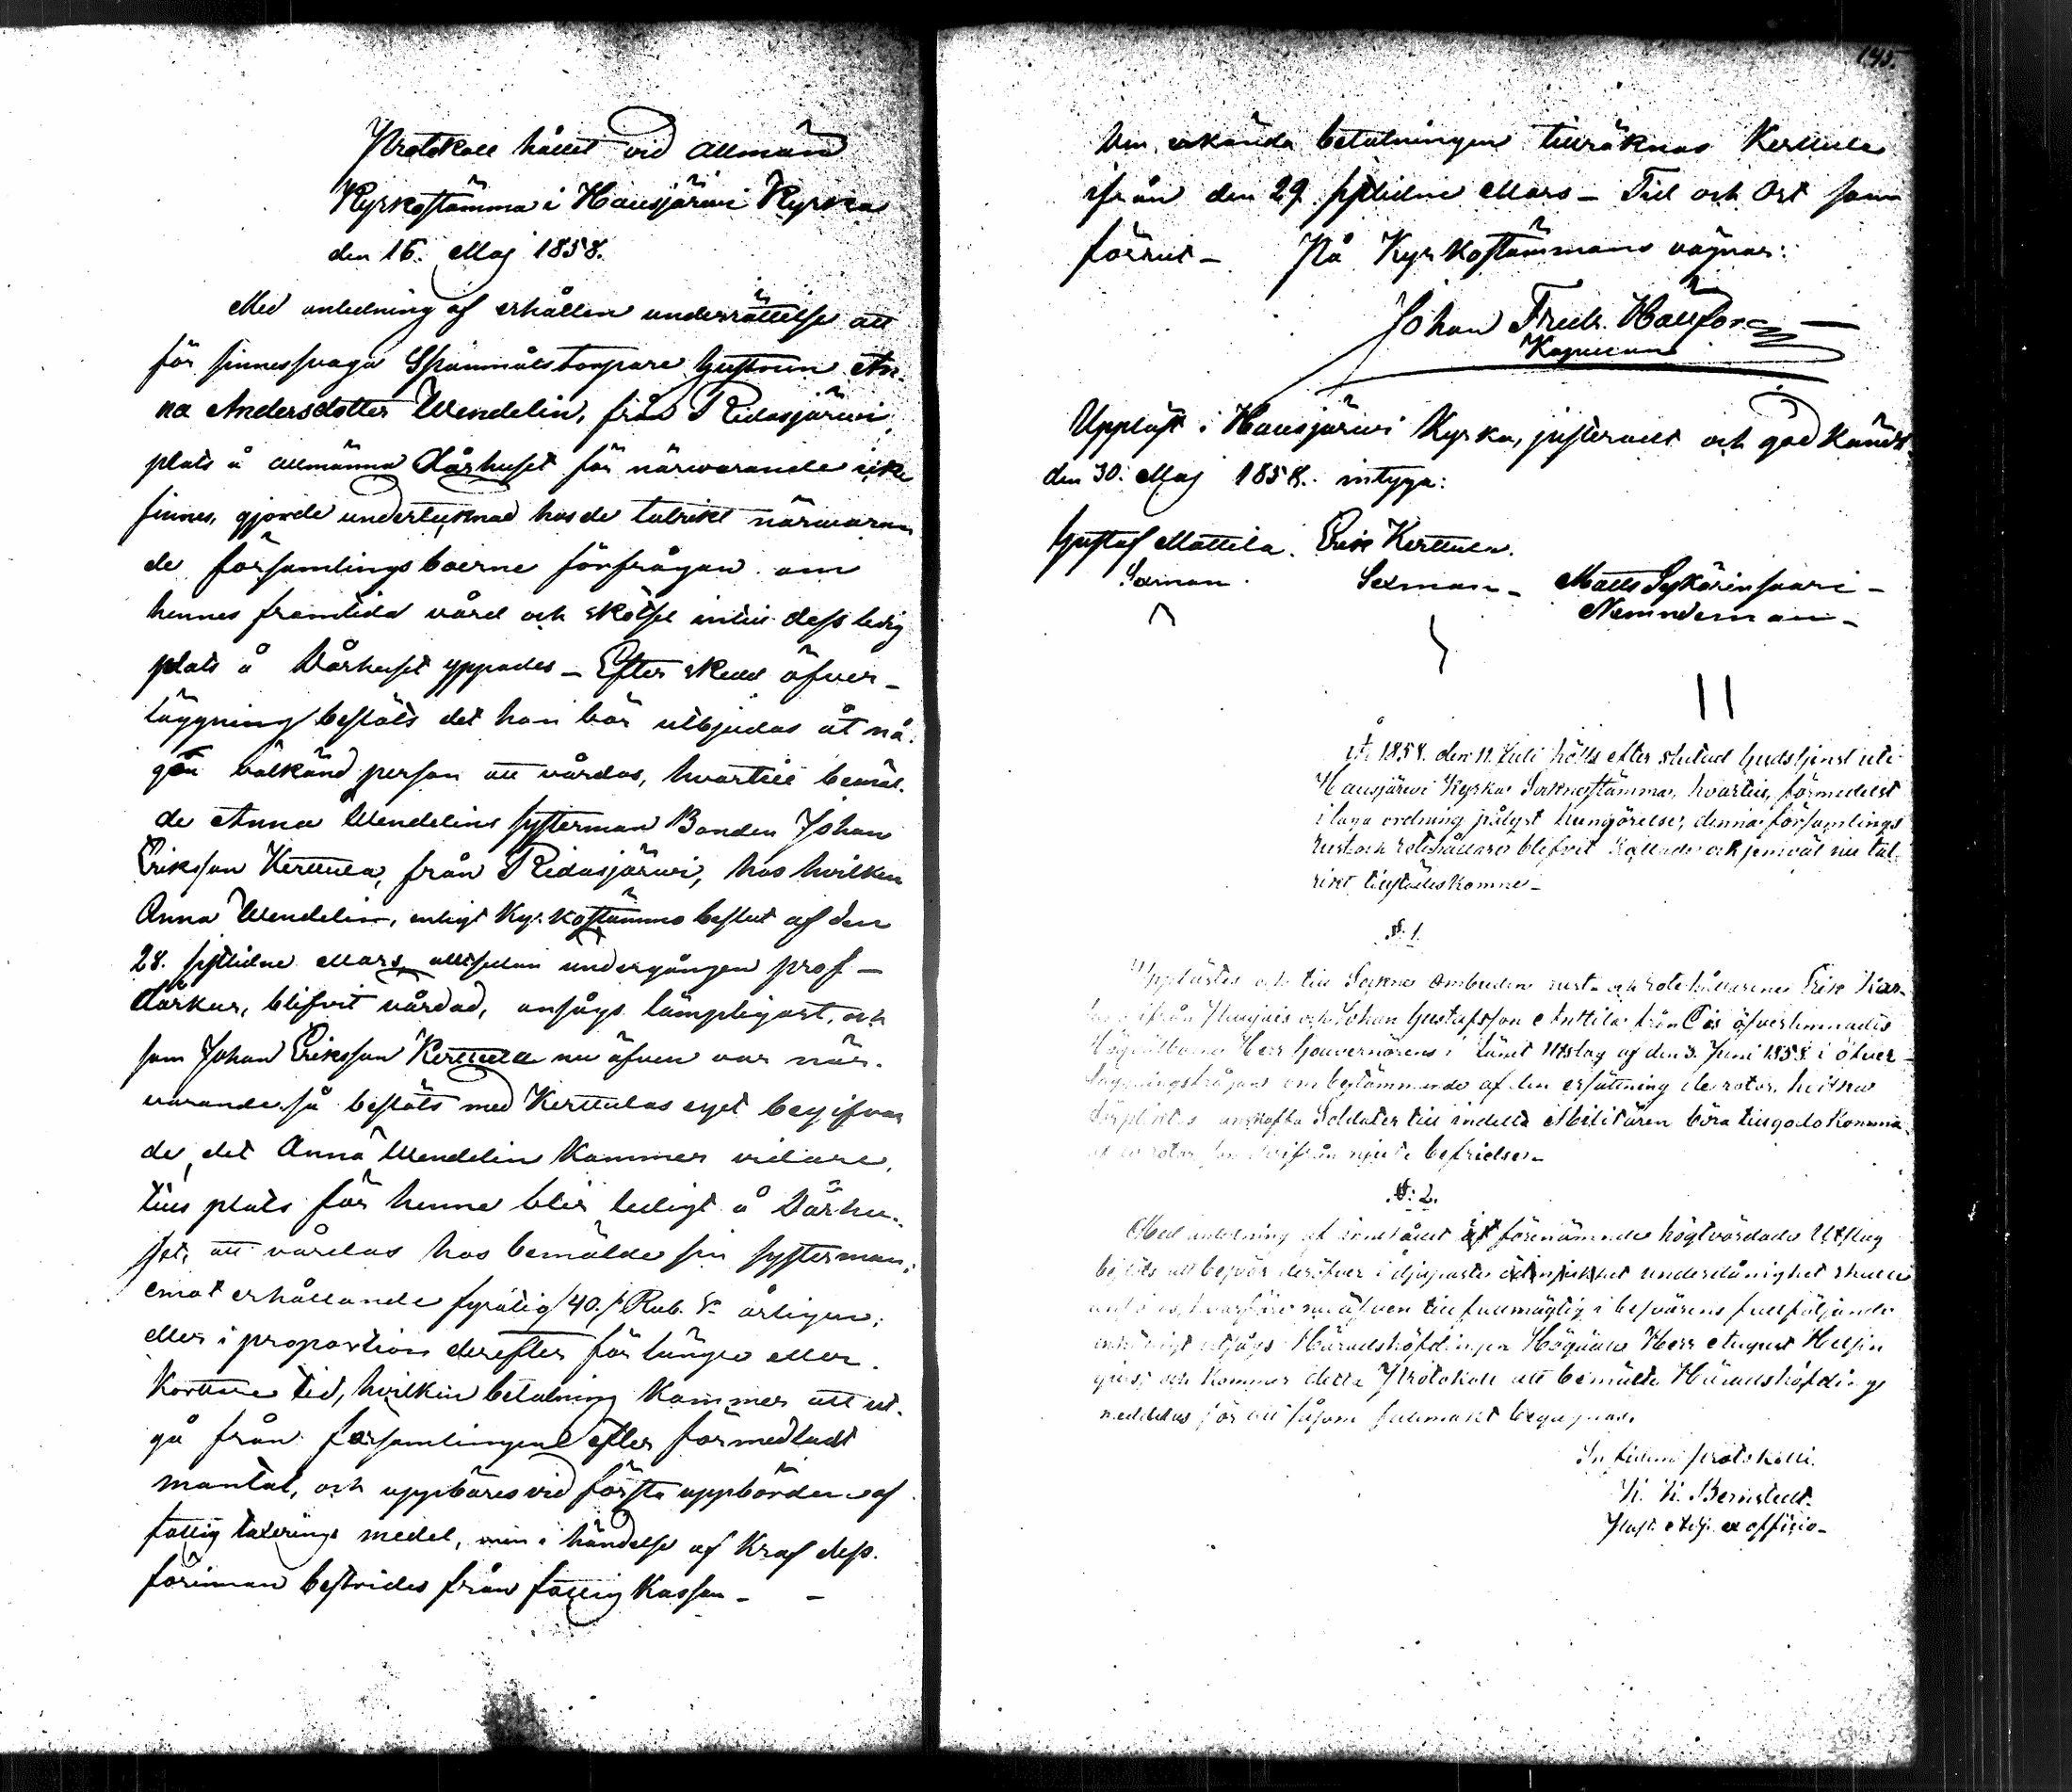 Protokoll hållet vid allmän
Kyrkostämma i Hausjärwi Kyrka
den 16. Maj 1858.
Med anledning af erhållen underrättelse att
för sinnessvaga Spanmålstorpare hustrun An-
na Andersdotter Wendelin, från Ridasjärwi,
plats å allmänna Dårhuset för närwarande icke
finnes, gjorde undertecknad hos de talrikt närwaran
de församlingsboerne förfrågan om
hennes framtida vård och skötsel intill dess ledig
plats å Dårhuset yppades – Efter skedd öfver-
läggning beslöts det hon bör utbjudas åt nå-
gon välkänd person att vårdas, hvartill bemäl-
de Anna Wendelins systerman Bonden Johan
Eriksson Kerttula, från Ridasjärwi, hos hvilken
Anna Wendelin, enligt Kyrkostämmo beslut af den
28. sistlidne Mars, allt sedan undergången prof-
dårkur, blifvit vårdad, ansågs lämpligast, och
som Johan Eriksson Kerttula nu äfven var när-
varande så beslöts med Kerttulas eget begifvan
de, det Anna Wendelin kommer vidare,
tills plats för henne blir ledigt å Dårhu-
set, att vårdas hos bemälde sin systerman,
emot erhållande fyratio /40./ Rub. Sr årligen,
eller i proportion derefter för längre eller
kortare tid, hvilken betalning kommer att ut-
gå från församlingen efter förmedladt
mantal, och uppbäres vid första uppbörden af
fattig taxerings medel, men i händelse af kraf dess-
förinnan bestrides från fattig Kassan –
145.
Den erkända betalningen tillräknas Kerttula
ifrån den 29 sistlidne Mars – Tid och Ort som
förrut – På Kyrkostämmans vägnar:
Johan Fredr. Hällfors
Kapellan
Uppläst i Hausjärwi Kyrka, justeradt och godkändt
den 30. Maj 1858. intyga:
Gustaf Mattila. Erik Kerttula.
Sexman. Sexman – Matts Sykärinsaari –
Nämndeman –
År 1858. den 11. Juli hölls efter slutad Gudstjenst uti
Hausjärwi Kyrka Socknestämma, hvartill, förmedelst
i laga ordning pålyst kungörelse, denna församlings
rust och rotehållare blifvit kallade och jemväl nu tal-
rikt tillstädeskomne –
§: 1.
Upplästes och till Sockne Ombuden rust- och rotehållarene Erik
ifrån och Johan Gustafsson Anttila från Ois öfverlemnades
Högvälborne Herr Gouvernörens i Länet Utslag af den 3. Juni 1858 i öfver-
läggningsfrågan om bestämmande af den ersättning de rotor, hvilka
anskaffa Soldater till indelta Militären böra tillgodo komma
af de rotor som derifrån njuta befrielse –
§: 2.
Med anledning af innehållet af förenämnde högtvördade Utslag
beslöts att besvär deröfver i djupaste underdånighet skulle
anföras, hvarföre nu äfven till fullmägtig i besvärens fullföljande
enhälligt utsågs Häradshöfdingen Högädle Herr August
och kommer detta Protokoll att bemälte Häradshöfding
meddelas för att såsom fullmakt begagnas.
In fidem protokolli.
K. H. Bernstedt.
Past. Adj. ex officio –